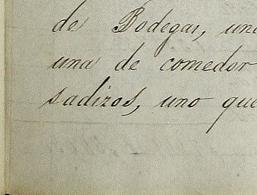 de Bodegas, una
una de comedor
sadizos, uno que